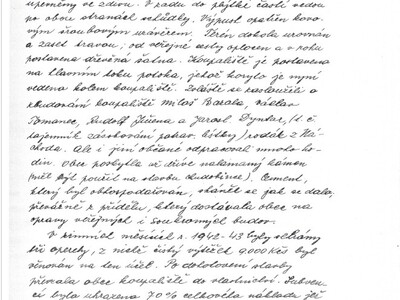 upevněny ve zdivu. V zadu do plytké části vedou
po obou stranách schůdky. Výpust opatřen kovo-
vým šroubovým uzávěrem. Terén dokola urovnán
a zaset travou; od veřejné cesty oplocen a v rohu
postavena dřevěná šatna. Koupaliště je postaveno
na hlavním toku potoka, jehož koryto je nyní
vedeno kolem koupaliště. Zvláště se zasloužili o
vybudování koupaliště Miloš Bacala, Václav
Tomanec, Rudolf Jirma a Jarosl. Dyntar, (t. č.
tajemník zásobování pohon. látky) rodák z Ná-
choda. Ale i jiní občané odpracovali mnoho ho-
din. Obec poskytla již dříve nalámaný kámen
(měl být použit na stavbu chudobince). Cement,
který byl obhospodařován, sháněl se jak se dalo,
převážně z přídělu, který dostávala obec na
opravy veřejných i soukromých budov.
V zimních měsících r. 1942-43 byly sehrány
dvě operety, z nichž čistý výtěžek 9.000 Kčs byl
věnován na ten účel. Po dohotovení stavby
převzala obec koupaliště do vlastnictví. Subven-
cí byla uhrazena 70% celkového nákladu již